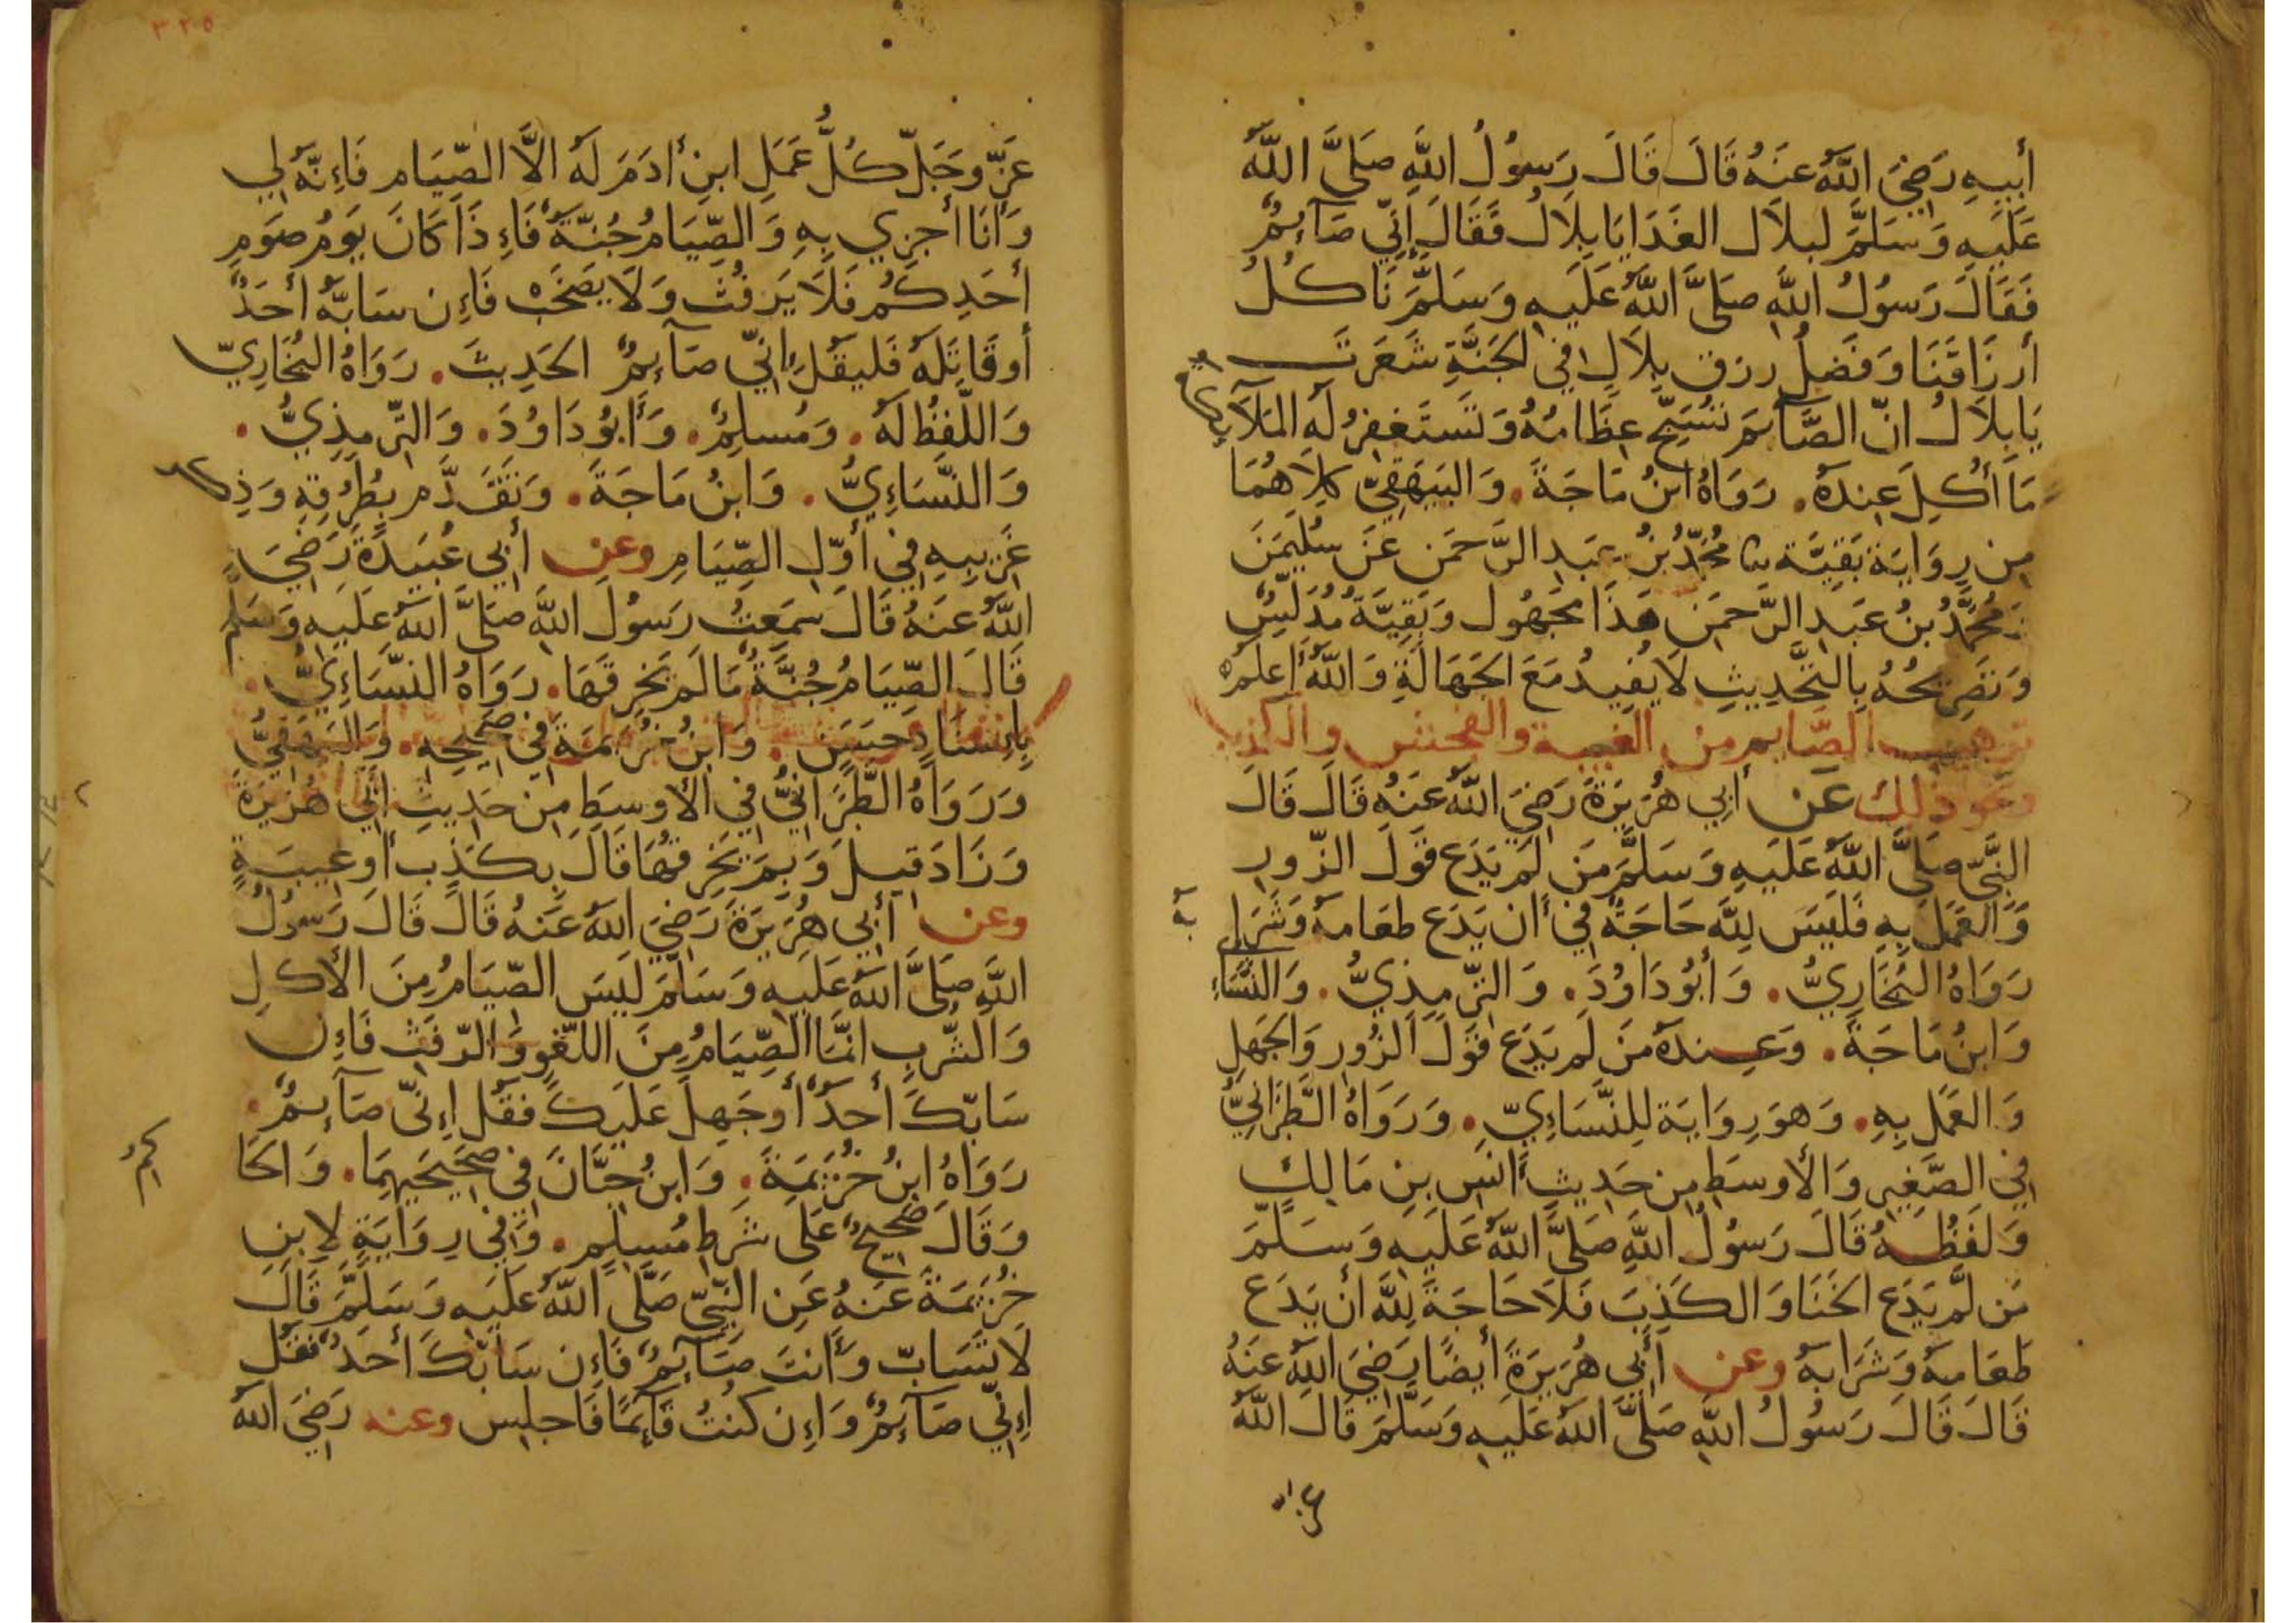 أَبِيهِ رَضِيَ اللَّهُ عَنهُ قَالَ قَالَ رَسُولُ اللَّهِ صَلَّى اللَّهُ
عَلَيهِ وَسَلَّمَ لبلَال الغَدَا يَا بِلَالُ فَقَالَ إِنِّي صَآئِمٌ
فَقَالَ رَسُولُ اللَّهِ صَلَّى اللَّهُ عَلَيهِ وَسَلَّمَ نَاكُلُ
أرزَاقَنَا وَفَضلُ رزق بِلَالٍ فِي الجَنَّةِ شَعَرتَ
يَا بِلَالُ انّ الصَّآئمَ تُسَبِّحُ عِظَامُهُ وَتَستَغفِرُ لَهُ المَلَآئِكَة
مَا أُكِلَ عِندَهُ. رَوَاهُ ابنُ مَاجَةَ. وَالبَيهَقِيّ كِلَاهُمَا
مِن رِوَايَة بَقِيَّة ثنا مُحَمَّدُ بنُ عَبدِ الرَّحمَن عَن سُلَيمَنَ
وَمُحَمَّدُ بنُ عَبدِ الرَّحمَن هَذَا مَجهُول وَبَقِيَّةُ مُدَلِّسٌ
وَتَصرِيحُهُ بِالتَّحدِيثِ لَا يُفِيدُ مَعَ الجَهَالَةِ وَاللَّهُ أَعلَمُ
ترهيب الصَّايم من الغيبة والفحش والكذب
ونحو ذلك عَن أَبِي هُرَيرَةَ رَضِيَ اللَّهُ عَنهُ قَالَ قَالَ
النَّبِيّ صَلَّى اللَّهُ عَلَيهِ وَسَلَّمَ مَن لَم يَدَع قَولَ الزُّورِ
وَالعَمَلَ بِهِ فَلَيسَ لِلَّهِ حَاجَةٌ فِي أَن يَدَع طعَامهُ وَشَرَابهُ
رَوَاهُ البُخَارِيُّ. وَأَبُو دَاوُدَ. وَالتِّرمِذِيُّ. وَالنَّسَاءِ
وَابنُ مَاجَةَ. وَعِندَهُ مَن لَم يَدَع قَولَ الزُّور وَالجَهل
وَالعَمَل بِهِ. وَهوَ رِوَايَة لِلنَّسَاءِيّ. وَرَوَاهُ الطَّبَرَانِيُّ
فِي الصَّغِيرِ وَالأَوسَطِ مِن حَدِيثِ أَنَسِ بنِ مَالِكٍ
وَلَفظُهُ قَالَ رَسُولُ اللَّهِ صَلَّى اللَّهُ عَلَيهِ وَسَلَّمَ
مَن لَم يَدَع الخَنَا وَالكَذِبَ فَلَا حَاجَةَ لِلَّهِ أَن يَدَع
طَعَامهُ وَشَرَابهُ وعن أَبِي هُرَيرَةَ أَيضًا رَضِيَ اللَّهُ عَنهُ
قَالَ قَالَ رَسُولُ اللَّهِ صَلَّى اللَّهُ عَلَيهِ وَسَلَّمَ قَالَ اللَّهُ
٣٢٥
عَزَّ وجَلّ كُلُّ عَمَلِ ابنِ أدَمَ لَهُ الَّا الصِّيَام فَإِنَّهُ لِي
وَأَنَا أَجزِي بِهِ وَالصِّيَامُ جُنَّةٌ فَإِذَا كَانَ يَومُ صَومِ
أَحَدِكُم فَلَا يَرفُث وَلَا يَصخَب فَإِن سَابَّهُ أَحَدٌ
أَو قَاتَلَهُ فَليَقُل إِنِّي صَآئِمٌ الحَدِيثَ. رَوَاهُ البُخَارِيّ
وَاللَّفظُ لَهُ. وَمُسلِمٌ. وَأَبُو دَاوُدَ. وَالتِّرمِذِيُّ.
وَالنَّسَاءِيُّ. وَابنُ مَاجَةَ. وَتَقَدَّم بِطُرُقِهِ وَذِكر
غَرِيبِهِ فِي أَوَّلِ الصِّيَامِ وعن أَبِي عُبَيدَةَ رَضِيَ
اللَّهُ عَنهُ قَالَ سَمِعتُ رَسُولَ اللَّهِ صَلَّى اللَّهُ عَلَيهِ وَسَلَّم
قَالَ الصِّيَامُ جُنَّةٌ مَا لَم يَخرِقهَا. رَوَاهُ النَّسَاءِيُّ.
بِإِسنَادٍ حَسَنٍ. وَابنُ خُزَيمَةَ فِي صَحِيحِهِ. وَالبَيهَقِيُّ
وَرَوَاهُ الطَّبَرَانِيُّ فِي الأَوسِطِ مِن حَدِيثِ أَبِي هُرَيرَةَ
وَزَادَ قِيلَ وَبِمَ يَخرِقهَا قَالَ بِكَذِبٍ أَو غِيبَةٍ
وعن أَبِي هُرَيرَةَ رَضِيَ اللَّهُ عَنهُ قَالَ قَالَ رَسُولُ
اللَّهِ صَلَّى اللَّهُ عَلَيهِ وَسَلَّمَ لَيسَ الصِّيَامُ مِنَ الأَكلِ
وَالشُّربِ انَّمَا الصِّيَامُ مِنَ اللَّغوِ وَالرَّفَثِ فَإِن
سَابَّكَ أَحَدٌ أَو جَهِلَ عَلَيكَ فَقُل إِنِّي صَآئِمٌ.
رَوَاهُ ابنُ خُزَيمَةَ. وَابنُ حِبَّانَ فِي صَحِيحَيهِمَا. وَالحَا
كمُ
وَقَالَ صَحِيحٌ عَلَى شَرطِ مُسلِم. وَفِي رِوَايَةٍ لِابنِ
خُزَيمَةَ عَنهُ عَنِ النَّبِيِّ صَلَّى اللَّهُ عَلَيهِ وَسَلَّمَ قَالَ
لَا تُسَابّ وَأَنتَ صَآئِمٌ فَإِن سَابَّكَ أَحَدٌ فَقُل
إِنِّي صَآئِمٌ وَإِن كُنتُ قَآئِمًا فَاجلِس وعنه رَضِيَ اللَّهُ